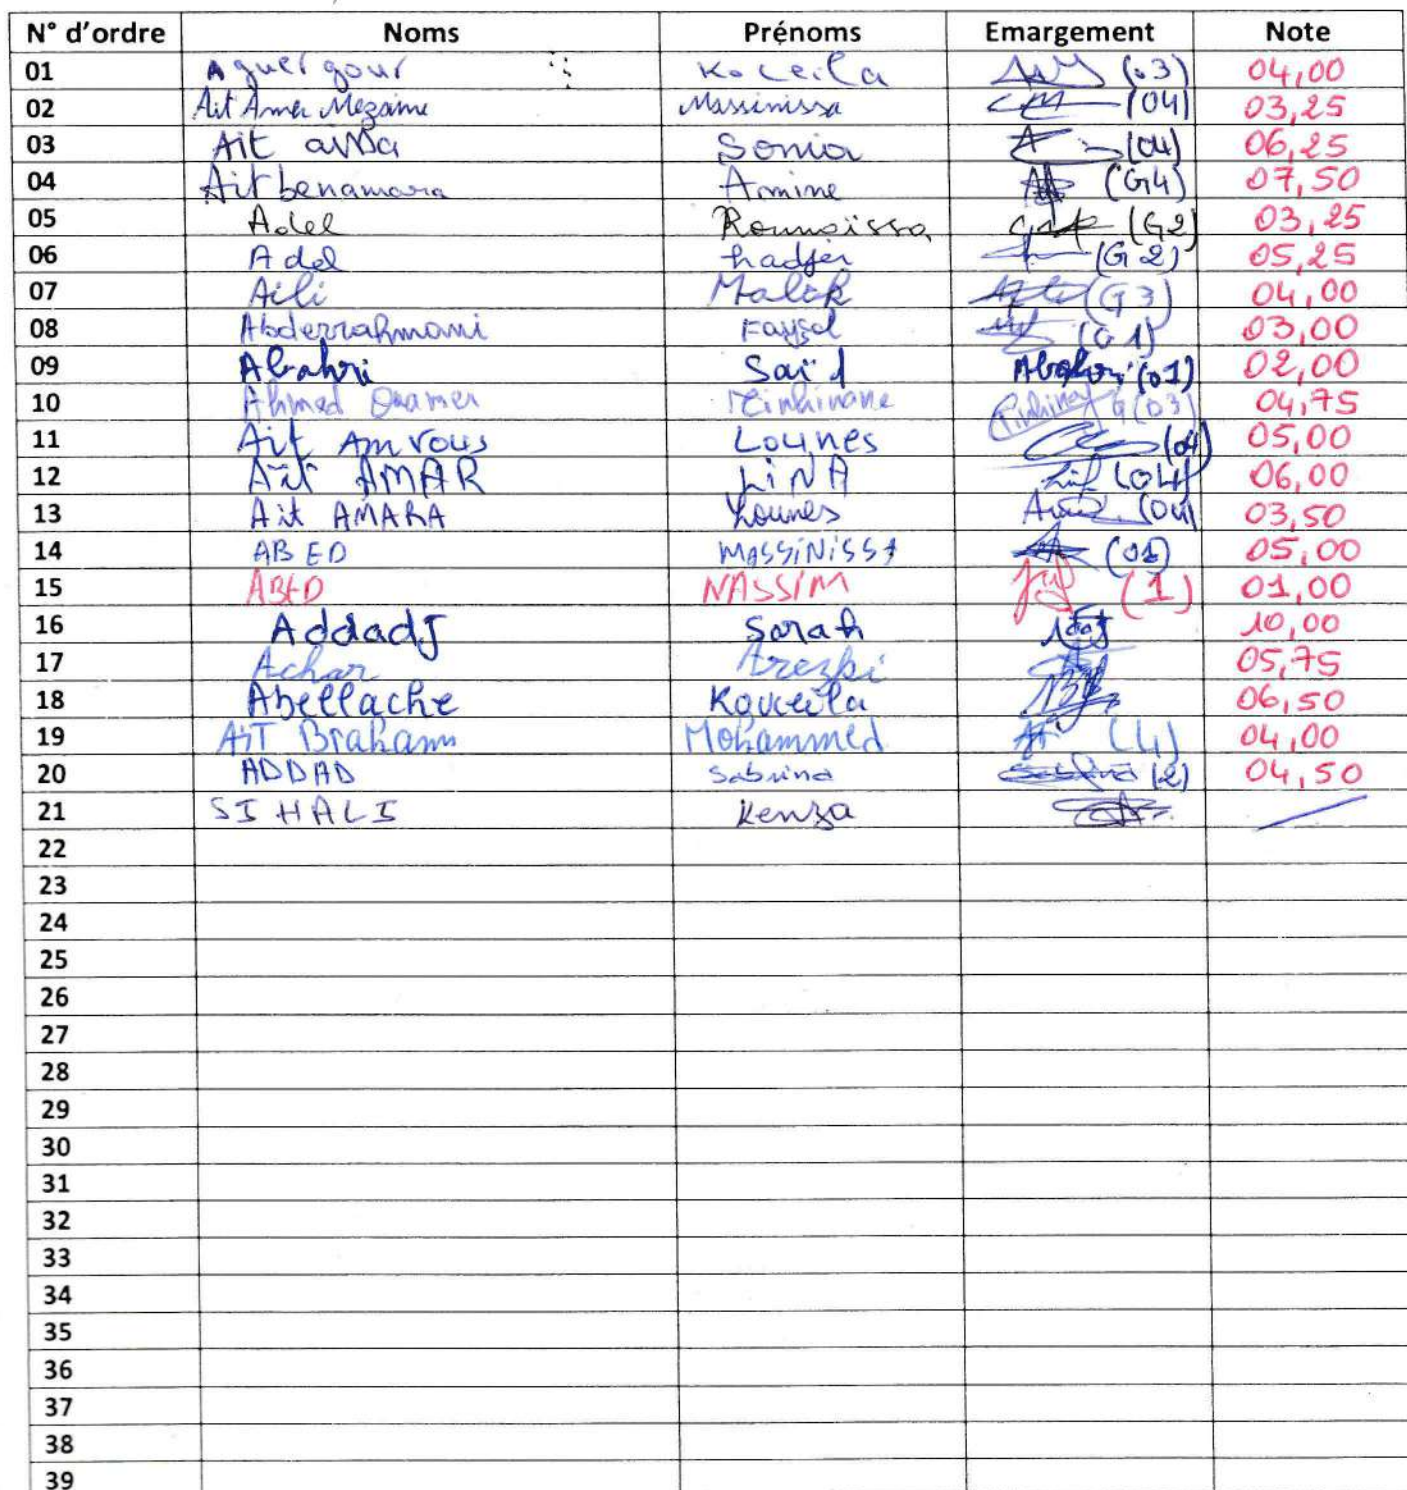 N° d'ordre Noms Prénoms Emargement Note
01 Aguergour Koceila (03) 04,00
02 Ait Amer Meziane Massinissa (04) 03,25
03 Ait aissa Sonia (04) 06,25
04 Ait benamara Amine (G4) 07,50
05 Adel Roumaissa (G2) 03,25
06 Adel hadjer (G2) 05,25
07 Aili Malek (G3) 04,00
08 Abderrahmani Fayçal (01) 03,00
09 Abahri Saïd Abahri (01) 02,00
10 Ahmed Ouamer G(03) 04,75
11 Ait Amrous Lounes (04) 05,00
12 Aït AMAR LiNA (04) 06,00
13 Ait AMARA Lounes (04) 03,50
14 ABED MASSiNiSSA (01) 05,00
15 ABED NASSIM (1) 01,00
16 Addadj Sarah 10,00
17 Achar Arezki 05,75
18 Abellache Kouceila 06,50
19 AiT Brahami Mohammed (4) 04,00
20 ADDAD Sabrina (2) 04,50
21 SI HALI Kenza
22
23
24
25
26
27
28
29
30
31
32
33
34
35
36
37
38
39